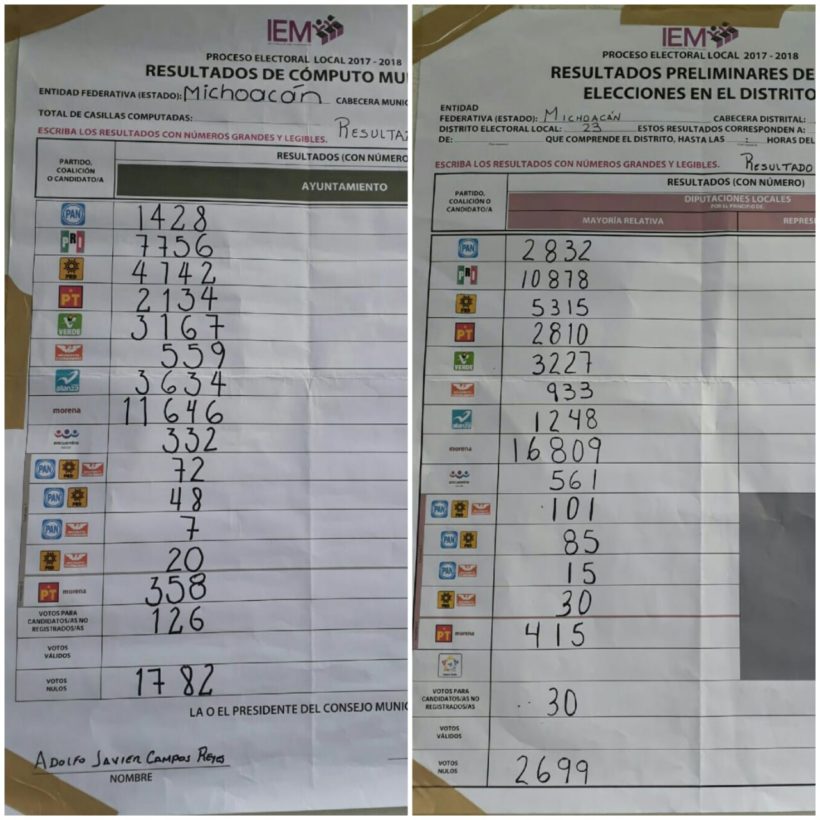 IEM
PROCESO ELECTORAL LOCAL 2017 - 2018
RESULTADOS DE CÓMPUTO MU
ENTIDAD FEDERATIVA (ESTADO): Michoacán CABECERA MUNIC
TOTAL DE CASILLAS COMPUTADAS:
ESCRIBA LOS RESULTADOS CON NÚMEROS GRANDES Y LEGIBLES. RESULTA
PARTIDO, COALICIÓN O CANDIDATO/A
RESULTADOS (CON NÚMERO
AYUNTAMIENTO
PAN 1428
PRI 7756
PRD 4742
PT 2134
VERDE 3167
559
alianza 3634
morena 11 646
encuentro 332
PAN PRD 72
PAN PRD 48
PAN 7
PRD 20
PT morena 358
VOTOS PARA CANDIDATOS/AS NO REGISTRADOS/AS 126
VOTOS VÁLIDOS
VOTOS NULOS 1782
LA O EL PRESIDENTE DEL CONSEJO MUNIC
ADOLFO JAVIER CAMPOS REYES
NOMBRE
IEM
PROCESO ELECTORAL LOCAL 2017 - 2018
RESULTADOS PRELIMINARES DE
ELECCIONES EN EL DISTRITO
ENTIDAD
FEDERATIVA (ESTADO): MICHOACÁN CABECERA DISTRITAL:
DISTRITO ELECTORAL LOCAL: 23 ESTOS RESULTADOS CORRESPONDEN A:
DE: QUE COMPRENDE EL DISTRITO, HASTA LAS : HORAS DEL
ESCRIBA LOS RESULTADOS CON NÚMEROS GRANDES Y LEGIBLES. RESULTADO
PARTIDO, COALICIÓN O CANDIDATO/A
RESULTADOS (CON NÚMERO)
DIPUTACIONES LOCALES
POR EL PRINCIPIO DE:
MAYORÍA RELATIVA REPRES
PAN 2832
PRI 10878
PRD 5315
PT 2810
VERDE 3227
933
alianza 1248
morena 16809
encuentro 561
PAN PRD 101
PAN PRD 85
PAN 15
PRD 30
PT morena 415
VOTOS PARA CANDIDATOS/AS NO REGISTRADOS/AS 30
VOTOS VÁLIDOS
VOTOS NULOS 2699